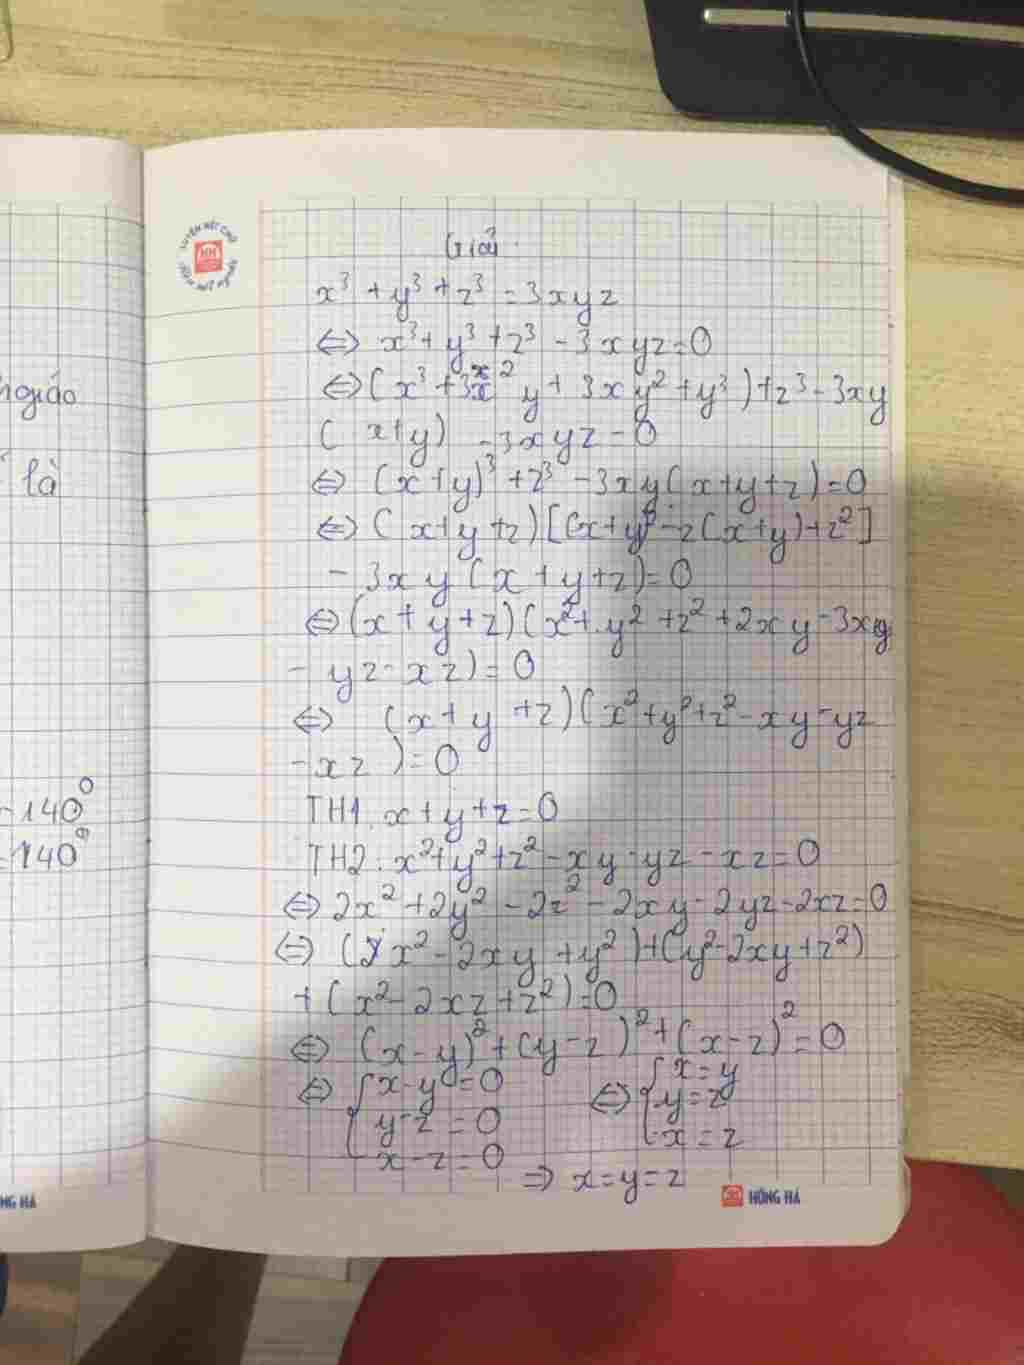 Giải
x³ + y³ + z³ = 3xyz
⇔ x³ + y³ + z³ - 3xyz = 0
⇔ (x³ + 3x²y + 3xy² + y³) + z³ - 3xy
(x+y) - 3xyz = 0
⇔ (x+y)³ + z³ - 3xy(x+y+z) = 0
⇔ (x+y+z)[(x+y)² - z(x+y) + z²]
- 3xy(x+y+z) = 0
⇔ (x+y+z)(x² + y² + z² + 2xy - 3xy
- yz - xz) = 0
⇔ (x+y+z)(x² + y² + z² - xy - yz
- xz) = 0
TH1. x+y+z=0
TH2: x² + y² + z² - xy - yz - xz = 0
⇔ 2x² + 2y² - 2z² - 2xy - 2yz - 2xz = 0
⇔ (x² - 2xy + y²) + (y² - 2xy + z²)
+ (x² - 2xz + z²) = 0
⇔ (x-y)² + (y-z)² + (x-z)² = 0
⇔ { x-y = 0 ⇔ { x = y
y-z = 0 y = z
x-z = 0 x = z
⇒ x = y = z
HH
HỒNG HÀ
là
140⁰
=140⁰
NG HÀ